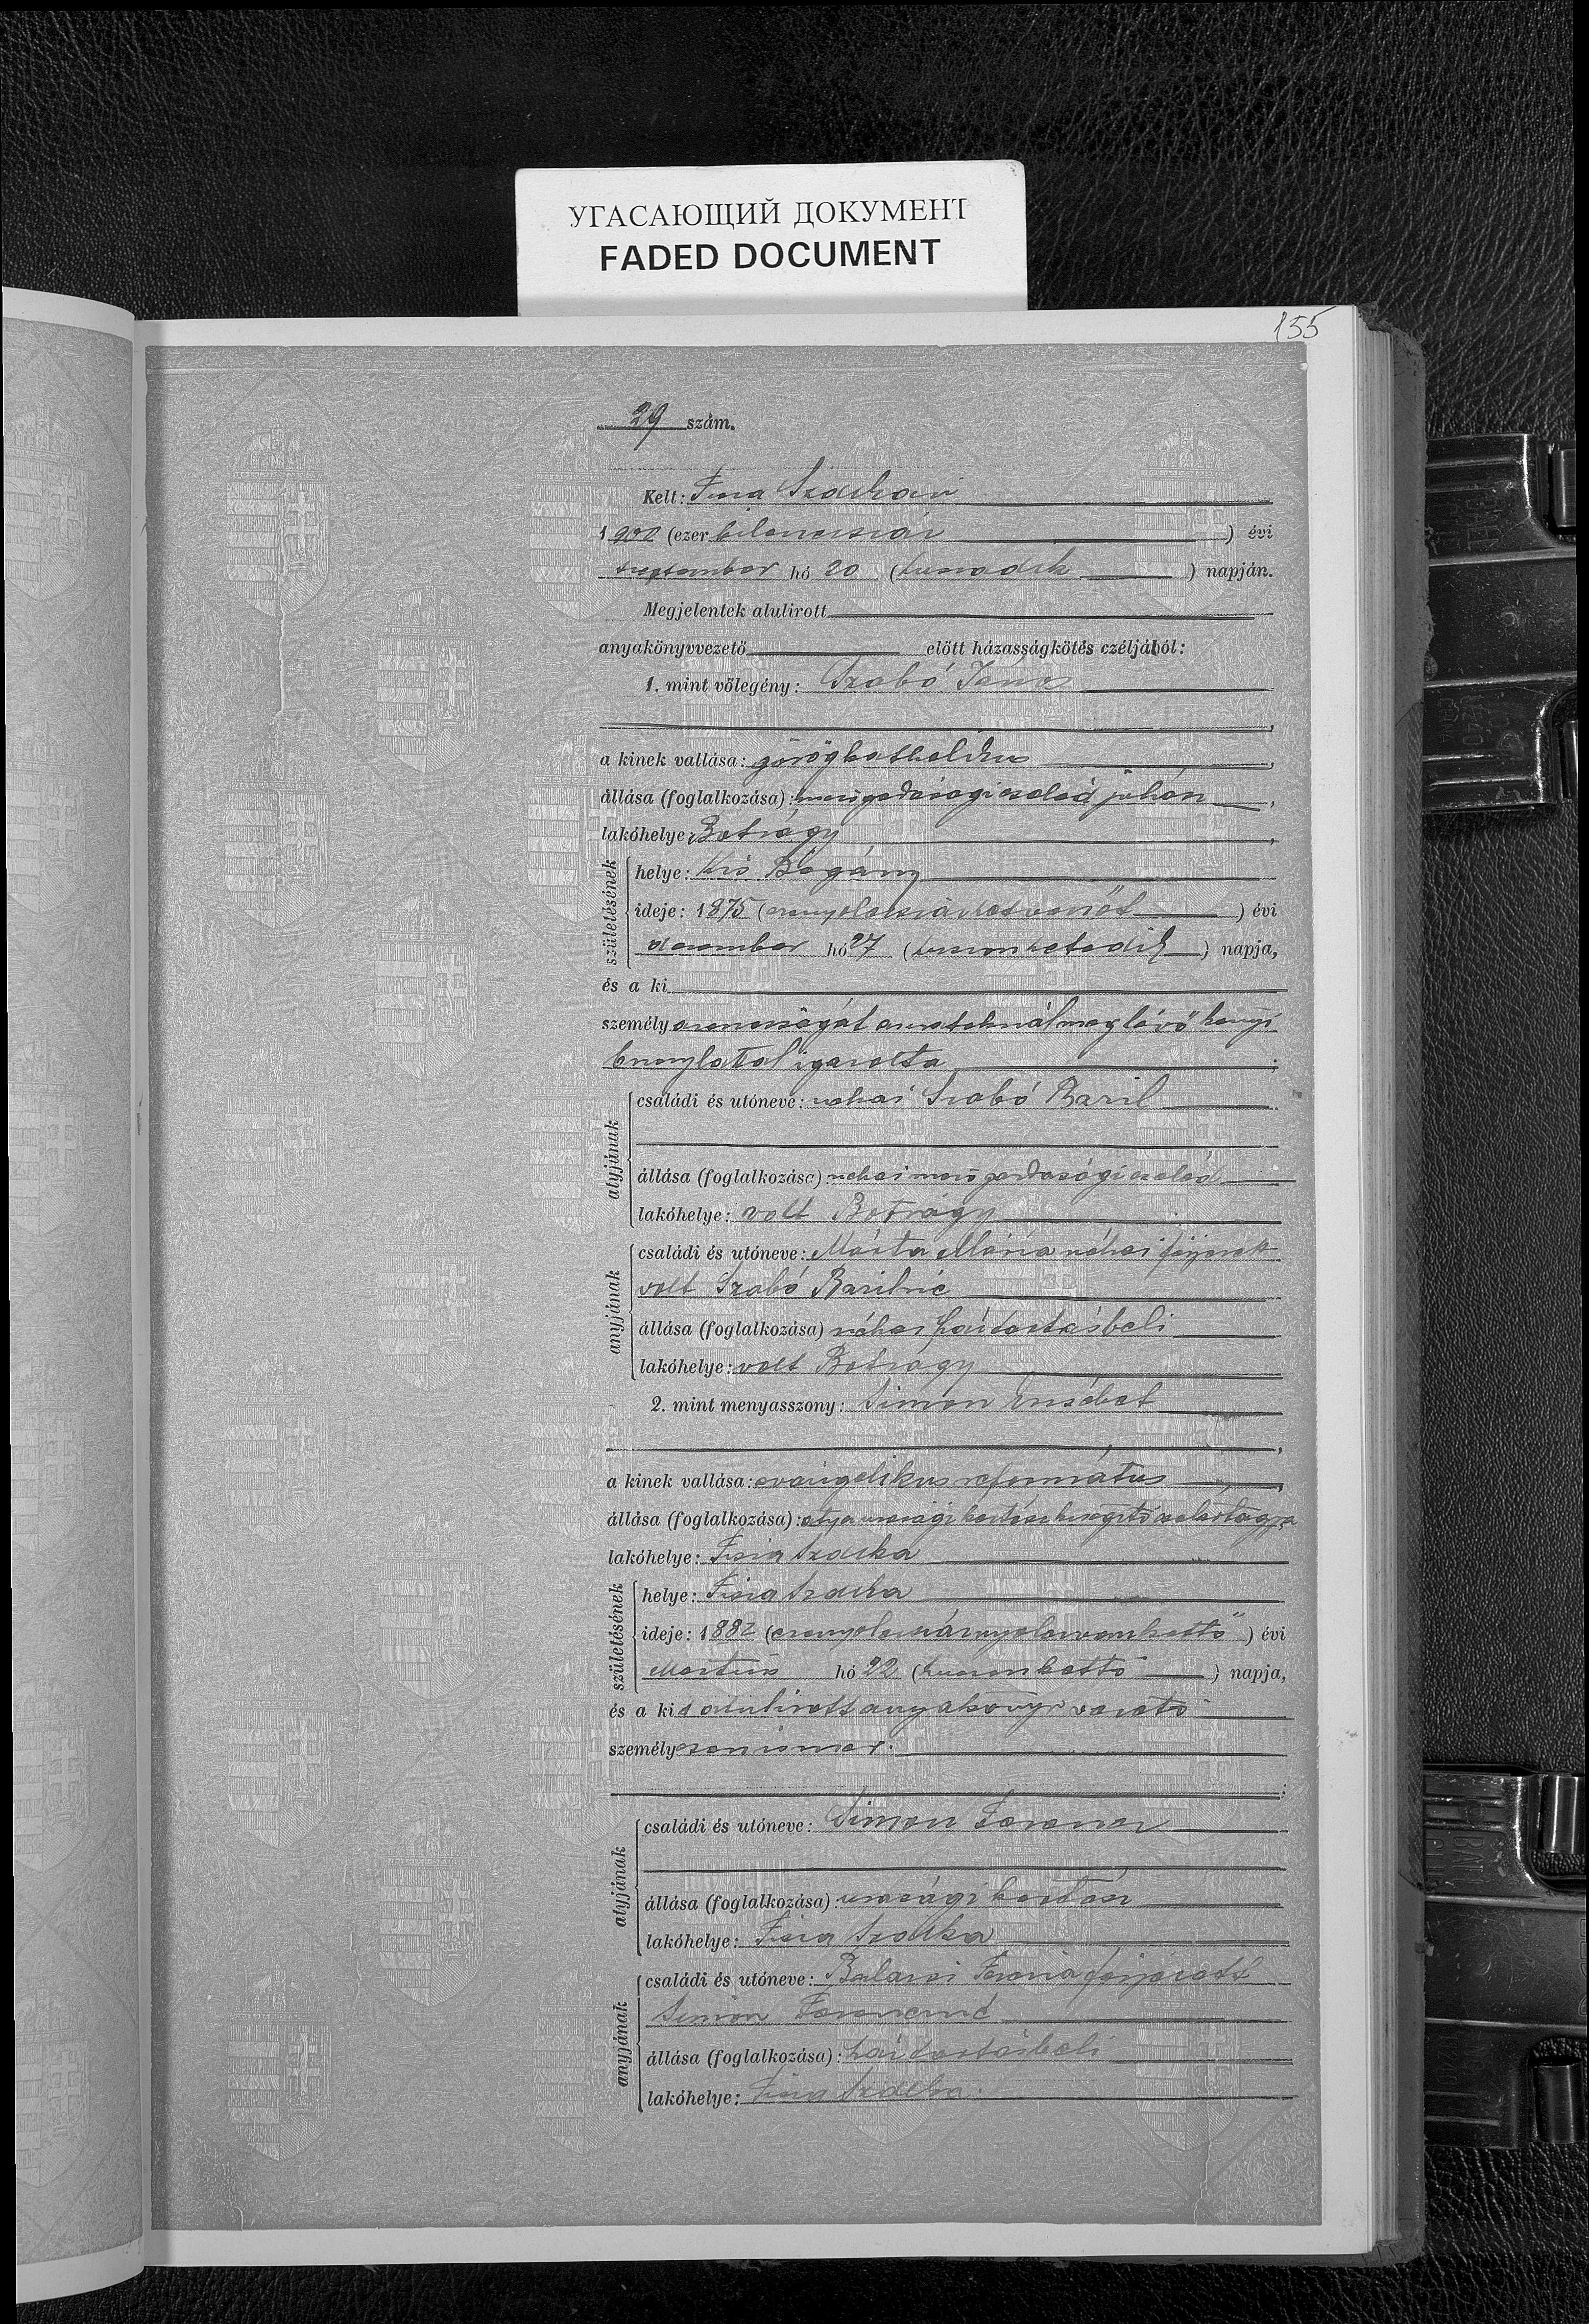 УГАСАЮЩИЙ ДОКУМЕНТ
FADED DOCUMENT
155
29 szám.
Kelt: Tisza
1900 (ezer kilenczszáz ) évi
szeptember hó 20 (huszadik ) napján.
Megjelentek alulirott
anyakönyvvezető előtt házasságkötés czéljából:
1. mint vőlegény: Szabó János
a kinek vallása: görögkatholikus
állása (foglalkozása): mezőgazdasági cseléd juhász
lakóhelye: Botrágy
születésének
helye: Kis Bégány
ideje: 1875 (ezernyolczszázhetvenöt ) évi
deczember hó 27 (huszonhetedik ) napja,
és a ki
személyazonosságát
igazolta ;
atyjának
családi és utóneve: néhai Szabó Bazil
állása (foglalkozása): néhai mezőgazdasági cseléd
lakóhelye: volt Botrágy
anyjának
családi és utóneve: Márta Mária néhai férjezett
volt Szabó Bazilné
állása (foglalkozása) néhai háztartásbeli
lakóhelye: volt Botrágy
2. mint menyasszony: Simon Erzsébet
a kinek vallása: evangelikus református
állása (foglalkozása): atya urasági
lakóhelye: Tisza
születésének
helye: Tisza
ideje: 1882 (ezernyolczszáznyolczvankettő ) évi
Martius hó 22 (huszonkettő ) napja,
és a kit alulirott anyakönyvvezető
személyesen ismer.
atyjának
családi és utóneve: Simon Ferencz
állása (foglalkozása): urasági kertész
lakóhelye: Tisza
anyjának
családi és utóneve: férjezett
Simon Ferenczné
állása (foglalkozása): háztartásbeli
lakóhelye: Tisza